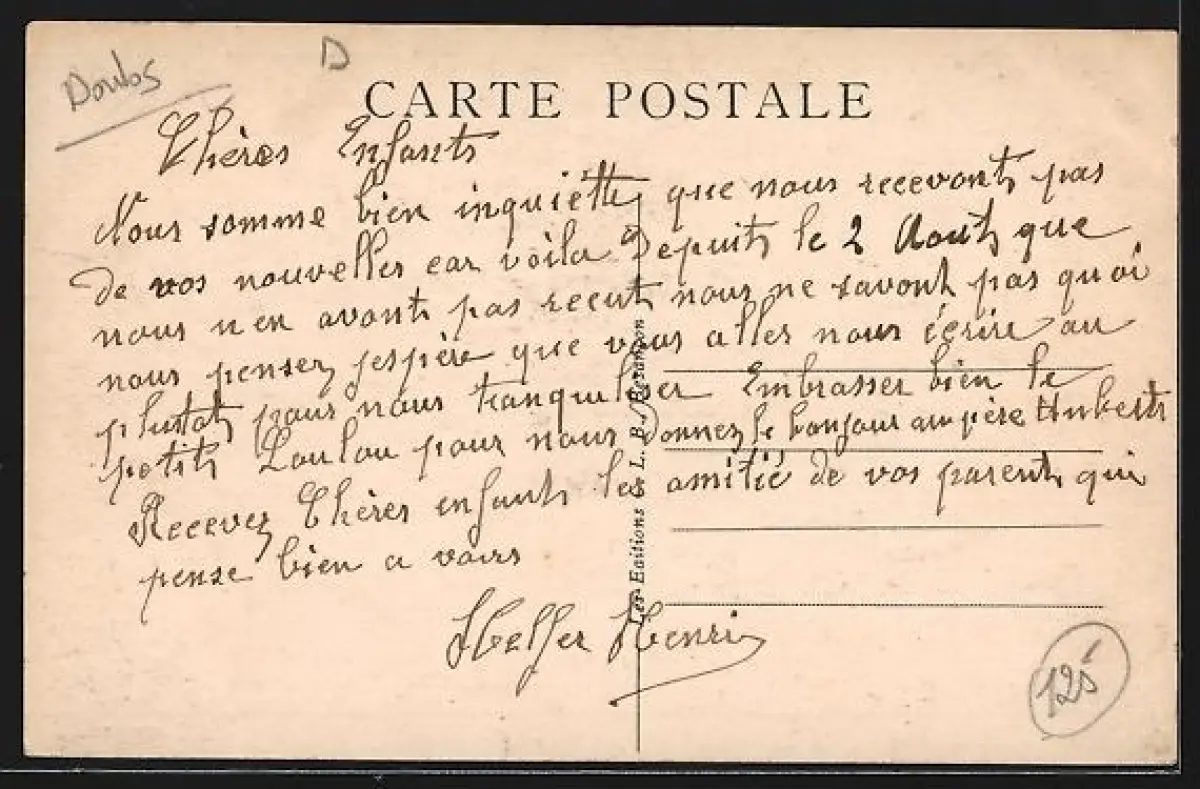 Doubs
D
CARTE POSTALE
Chères Enfants
Nous somme bien inquiétte que nous recevont pas
de vos nouvelles car voila depuit le 2 Aout que
nous n'en avont pas recut nous ne savont pas quoi
nous pensez j'espère que vous alles nous écrire au
plutot pour nous tranquiliser Embrasser bien le
petit Loulou pour nous Donnez le bonjour au père Hubert
Recevez Chères enfants les amitié de vos parent qui
pense bien a vous
Henri
Les Editions L. B. Besançon
125